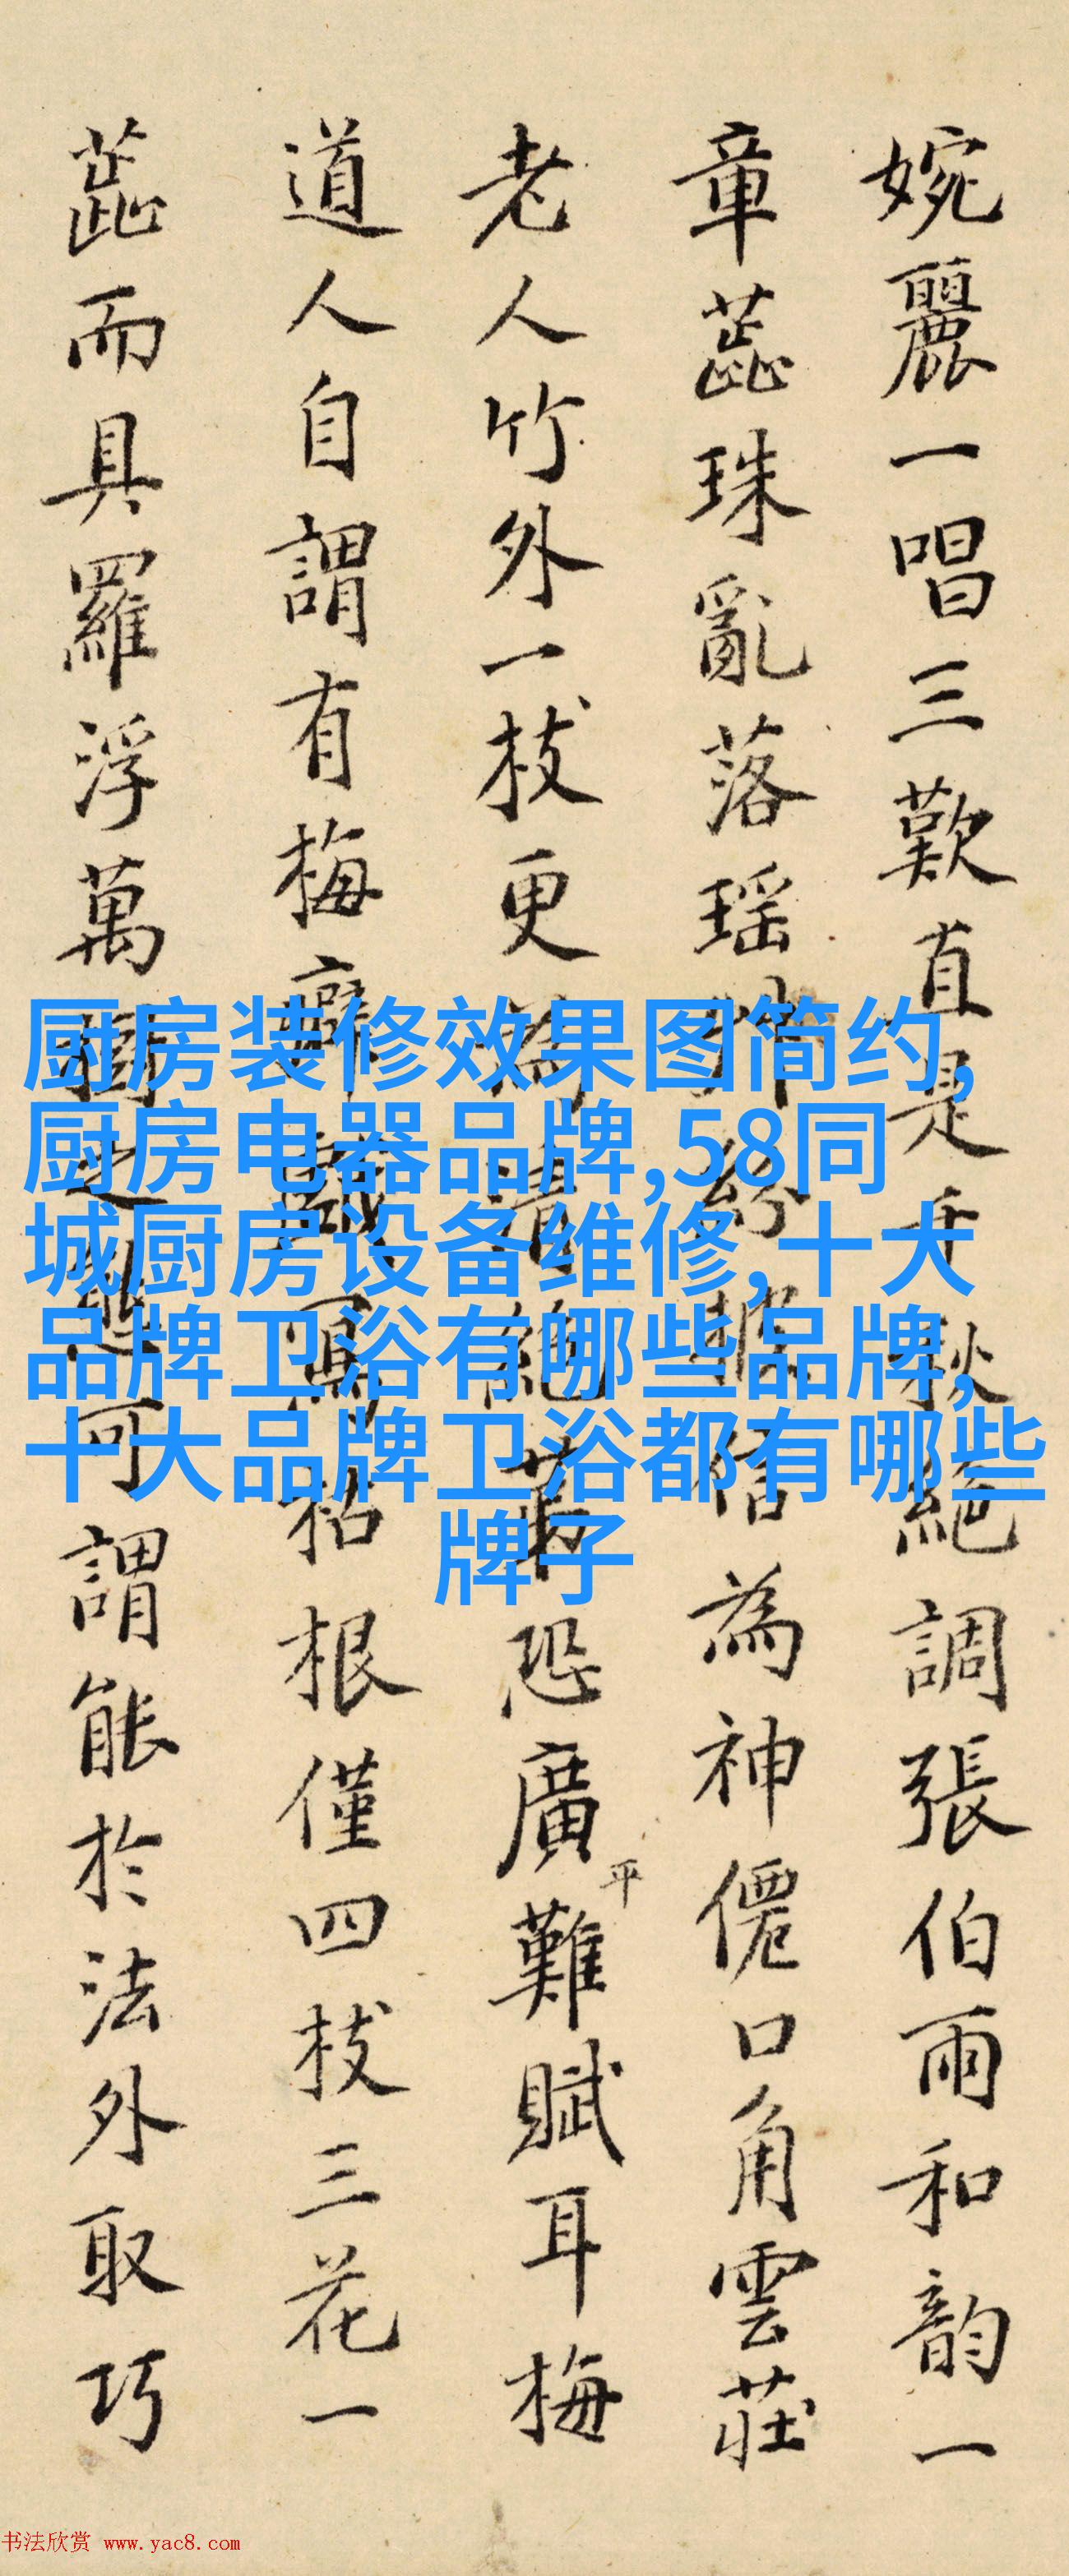 婉麗一唱三歎直是千秋絕調張伯雨和韵一
章蕋珠亂落瑶紛披信為神僊口角雲莊
老人竹外一枝更為清絕恐廣平難賦耳梅
道人自謂有梅癖戲寫根僅四枝三花一
蕋而具羅浮萬樹之態可謂能於法外取巧
厨房装修效果图简约,
厨房电器品牌,58同
城厨房设备维修,十大
品牌卫浴有哪些品牌,
十大品牌卫浴都有哪些
牌子
书法欣赏 www.yac8.com